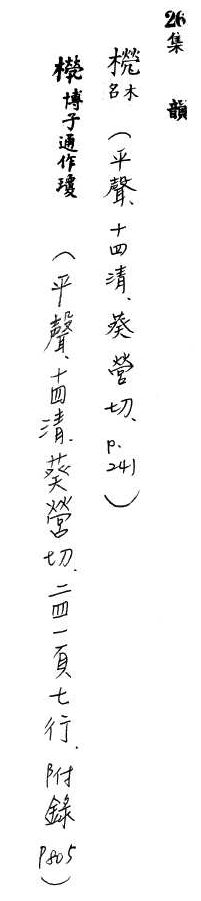 26 集 韻
橩 木名 (平聲、十四清、葵營切、p.241)
橩 博子通作瓊 (平聲、十四清、葵營切、二四一頁七行、附錄 P805)